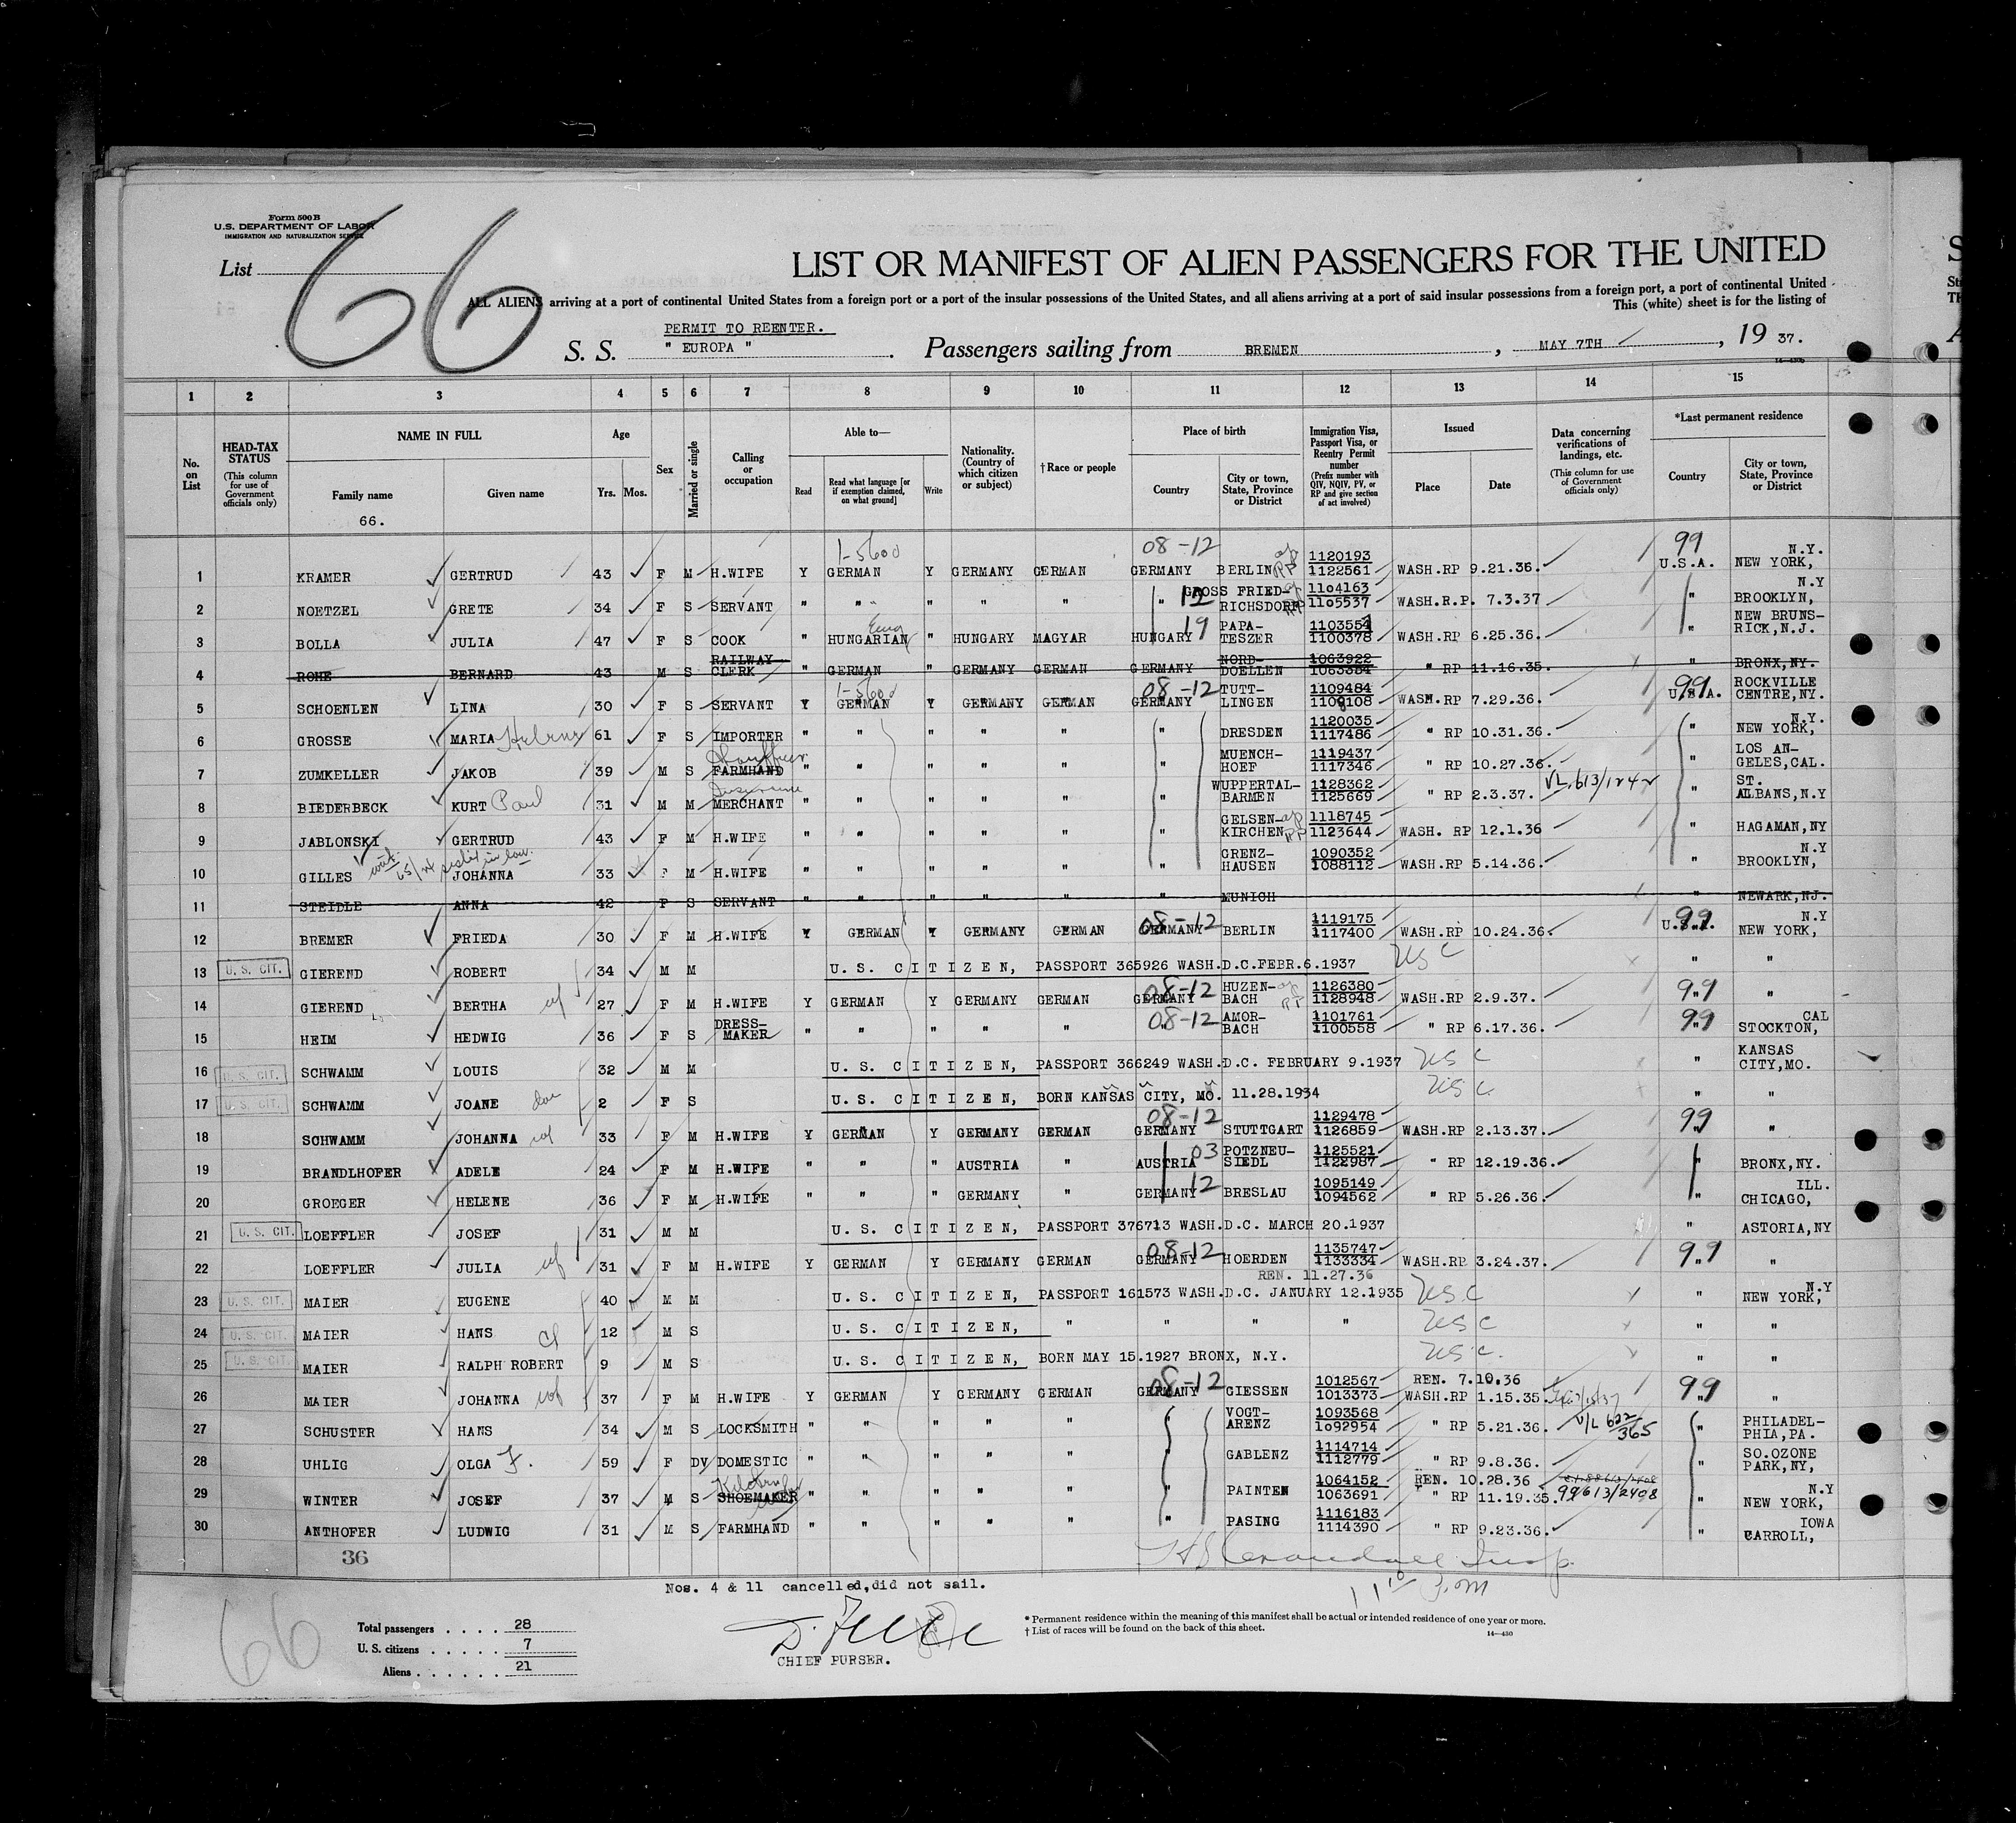 Form 500 B
U.S. DEPARTMENT OF LABOR
IMMIGRATION AND NATURALIZATION SERVICE
List
66
LIST OR MANIFEST OF ALIEN PASSENGERS FOR THE UNITED
ALL ALIENS arriving at a port of continental United States from a foreign port or a port of the insular possessions of the United States, and all aliens arriving at a port of said insular possessions from a foreign port, a port of continental United
This (white) sheet is for the listing of
PERMIT TO REENTER.
S. S. " EUROPA " . Passengers sailing from BREMEN , MAY 7TH , 19 37.
1 2 3 4 5 6 7 8 9 10 11 12 13 14 15
No. on List
HEAD-TAX STATUS (This column for use of Government officials only)
NAME IN FULL Family name Given name
66.
Age Yrs. Mos.
Sex
Married or single
Calling or occupation
Able to— Read Read what language [or if exemption claimed, on what ground] Write
Nationality. (Country of which citizen or subject)
† Race or people
Place of birth Country City or town, State, Province or District
Immigration Visa, Passport Visa, or Reentry Permit number (Prefix number with QIV, NQIV, PV, or RP and give section of act involved)
Issued Place Date
Data concerning verifications of landings, etc. (This column for use of Government officials only)
*Last permanent residence Country City or town, State, Province or District
1-5600 08-12 99
1 KRAMER GERTRUD 43 F M H.WIFE Y GERMAN Y GERMANY GERMAN GERMANY BERLIN 1120193 1122561 WASH.RP 9.21.36. U.S.A. N.Y. NEW YORK,
2 NOETZEL GRETE 34 F S SERVANT " " " " " " 12 GROSS FRIED-RICHSDORF 1104163 1105537 WASH.R.P. 7.3.37 " N.Y BROOKLYN,
3 BOLLA JULIA 47 F S COOK " HUNGARIAN Eng " HUNGARY MAGYAR HUNGARY 19 PAPA-TESZER 1103554 1100378 WASH.RP 6.25.36. " NEW BRUNS-RICK,N.J.
4 ROHE BERNARD 43 M S RAILWAY CLERK " GERMAN " GERMANY GERMAN GERMANY NORD-DOELLEN 1063922 1063384 " RP 11.16.35. " BRONX,NY.
5 SCHOENLEN LINA 30 F S SERVANT Y 1-5600 GERMAN Y GERMANY GERMAN GERMANY 08-12 TUTT-LINGEN 1109484 1109108 WASH.RP 7.29.36. 99 U.S.A. ROCKVILLE CENTRE,NY.
6 GROSSE MARIA Helene 61 F S IMPORTER " " " " " " DRESDEN 1120035 1117486 " RP 10.31.36. " N.Y. NEW YORK,
7 ZUMKELLER JAKOB 39 M S FARMHAND Chauffeur " " " " " " MUENCH-HOEF 1119437 1117346 " RP 10.27.36. " LOS AN-GELES,CAL.
8 BIEDERBECK KURT Paul 31 M M MERCHANT Insurance " " " " " " WUPPERTAL-BARMEN 1128362 1125669 " RP 2.3.37. " ST. ALBANS,N.Y
9 JABLONSKI GERTRUD 43 F M H.WIFE " " " " " " GELSEN-KIRCHEN 1118745 1123644 WASH. RP 12.1.36 " HAGAMAN,NY
10 GILLES JOHANNA sister in law 33 F M H.WIFE " " " " " " GRENZ-HAUSEN 1090352 1088112 WASH.RP 5.14.36. " N.Y BROOKLYN,
11 STEIDLE ANNA 42 F S SERVANT " " " " " " MUNICH " NEWARK,NJ.
12 BREMER FRIEDA 30 F M H.WIFE Y GERMAN Y GERMANY GERMAN GERMANY 08-12 BERLIN 1119175 1117400 WASH.RP 10.24.36. 99 U.S.A. N.Y NEW YORK,
13 U. S. CIT. GIEREND ROBERT 34 M M U. S. C I T I Z E N, PASSPORT 365926 WASH.D.C.FEBR.6.1937 USC " "
14 GIEREND BERTHA wf 27 F M H.WIFE Y GERMAN Y GERMANY GERMAN GERMANY 08-12 HUZEN-BACH 1126380 1128948 WASH.RP 2.9.37. 99 " "
15 HEIM HEDWIG 36 F S DRESS-MAKER " " " " " " 08-12 AMOR-BACH 1101761 1100558 " RP 6.17.36. 99 " CAL STOCKTON,
16 U. S. CIT. SCHWAMM LOUIS 32 M M U. S. C I T I Z E N, PASSPORT 366249 WASH.D.C. FEBRUARY 9.1937 USC " KANSAS CITY,MO.
17 U. S. CIT. SCHWAMM JOANE dau 2 F S U. S. C I T I Z E N, BORN KANSAS CITY, MO. 11.28.1934 USC " "
18 SCHWAMM JOHANNA wf 33 F M H.WIFE Y GERMAN Y GERMANY GERMAN GERMANY 08-12 STUTTGART 1129478 1126859 WASH.RP 2.13.37. 99 " "
19 BRANDLHOFER ADELE 24 F M H.WIFE " " " AUSTRIA " AUSTRIA 03 POTZNEU-SIEDL 1125521 1122987 " RP 12.19.36. " BRONX,NY.
20 GROEGER HELENE 36 F M H.WIFE " " " GERMANY " GERMANY 12 BRESLAU 1095149 1094562 " RP 5.26.36. " ILL. CHICAGO,
21 U. S. CIT. LOEFFLER JOSEF 31 M M U. S. C I T I Z E N, PASSPORT 376713 WASH.D.C. MARCH 20.1937 " ASTORIA,NY
22 LOEFFLER JULIA wf 31 F M H.WIFE Y GERMAN Y GERMANY GERMAN GERMANY 08-12 HOERDEN 1135747 1133334 WASH.RP 3.24.37. 99 " "
REN. 11.27.36
23 U. S. CIT. MAIER EUGENE 40 M M U. S. C I T I Z E N, PASSPORT 161573 WASH.D.C. JANUARY 12.1935 USC " N.Y NEW YORK,
24 U. S. CIT. MAIER HANS 12 M S U. S. C I T I Z E N, " " " " USC " "
25 U. S. CIT. MAIER RALPH ROBERT 9 M S U. S. C I T I Z E N, BORN MAY 15.1927 BRONX, N.Y. USC. " "
26 MAIER JOHANNA wf 37 F M H.WIFE Y GERMAN Y GERMANY GERMAN GERMANY 08-12 GIESSEN 1012567 1013373 REN. 7.10.36 WASH.RP 1.15.35. 99 " "
27 SCHUSTER HANS 34 M S LOCKSMITH " " " " " " VOGT-ARENZ 1093568 1092954 " RP 5.21.36. V/L 622/365 " PHILADEL-PHIA,PA.
28 UHLIG OLGA F. 59 F DV DOMESTIC " " " " " " GABLENZ 1114714 1112779 " RP 9.8.36. " SO.OZONE PARK,NY,
29 WINTER JOSEF 37 M S SHOEMAKER " " " " " " PAINTEN 1064152 1063691 REN. 10.28.36 " RP 11.19.35. 99613/2408 " N.Y NEW YORK,
30 ANTHOFER LUDWIG 31 M S FARMHAND " " " " " " PASING 1116183 1114390 " RP 9.23.36. " IOWA CARROLL,
36
Nos. 4 & 11 cancelled,did not sail.
66
Total passengers . . . . 28
U. S. citizens . . . . . 7
Aliens . . . . . . 21
CHIEF PURSER.
* Permanent residence within the meaning of this manifest shall be actual or intended residence of one year or more.
† List of races will be found on the back of this sheet.
14—430